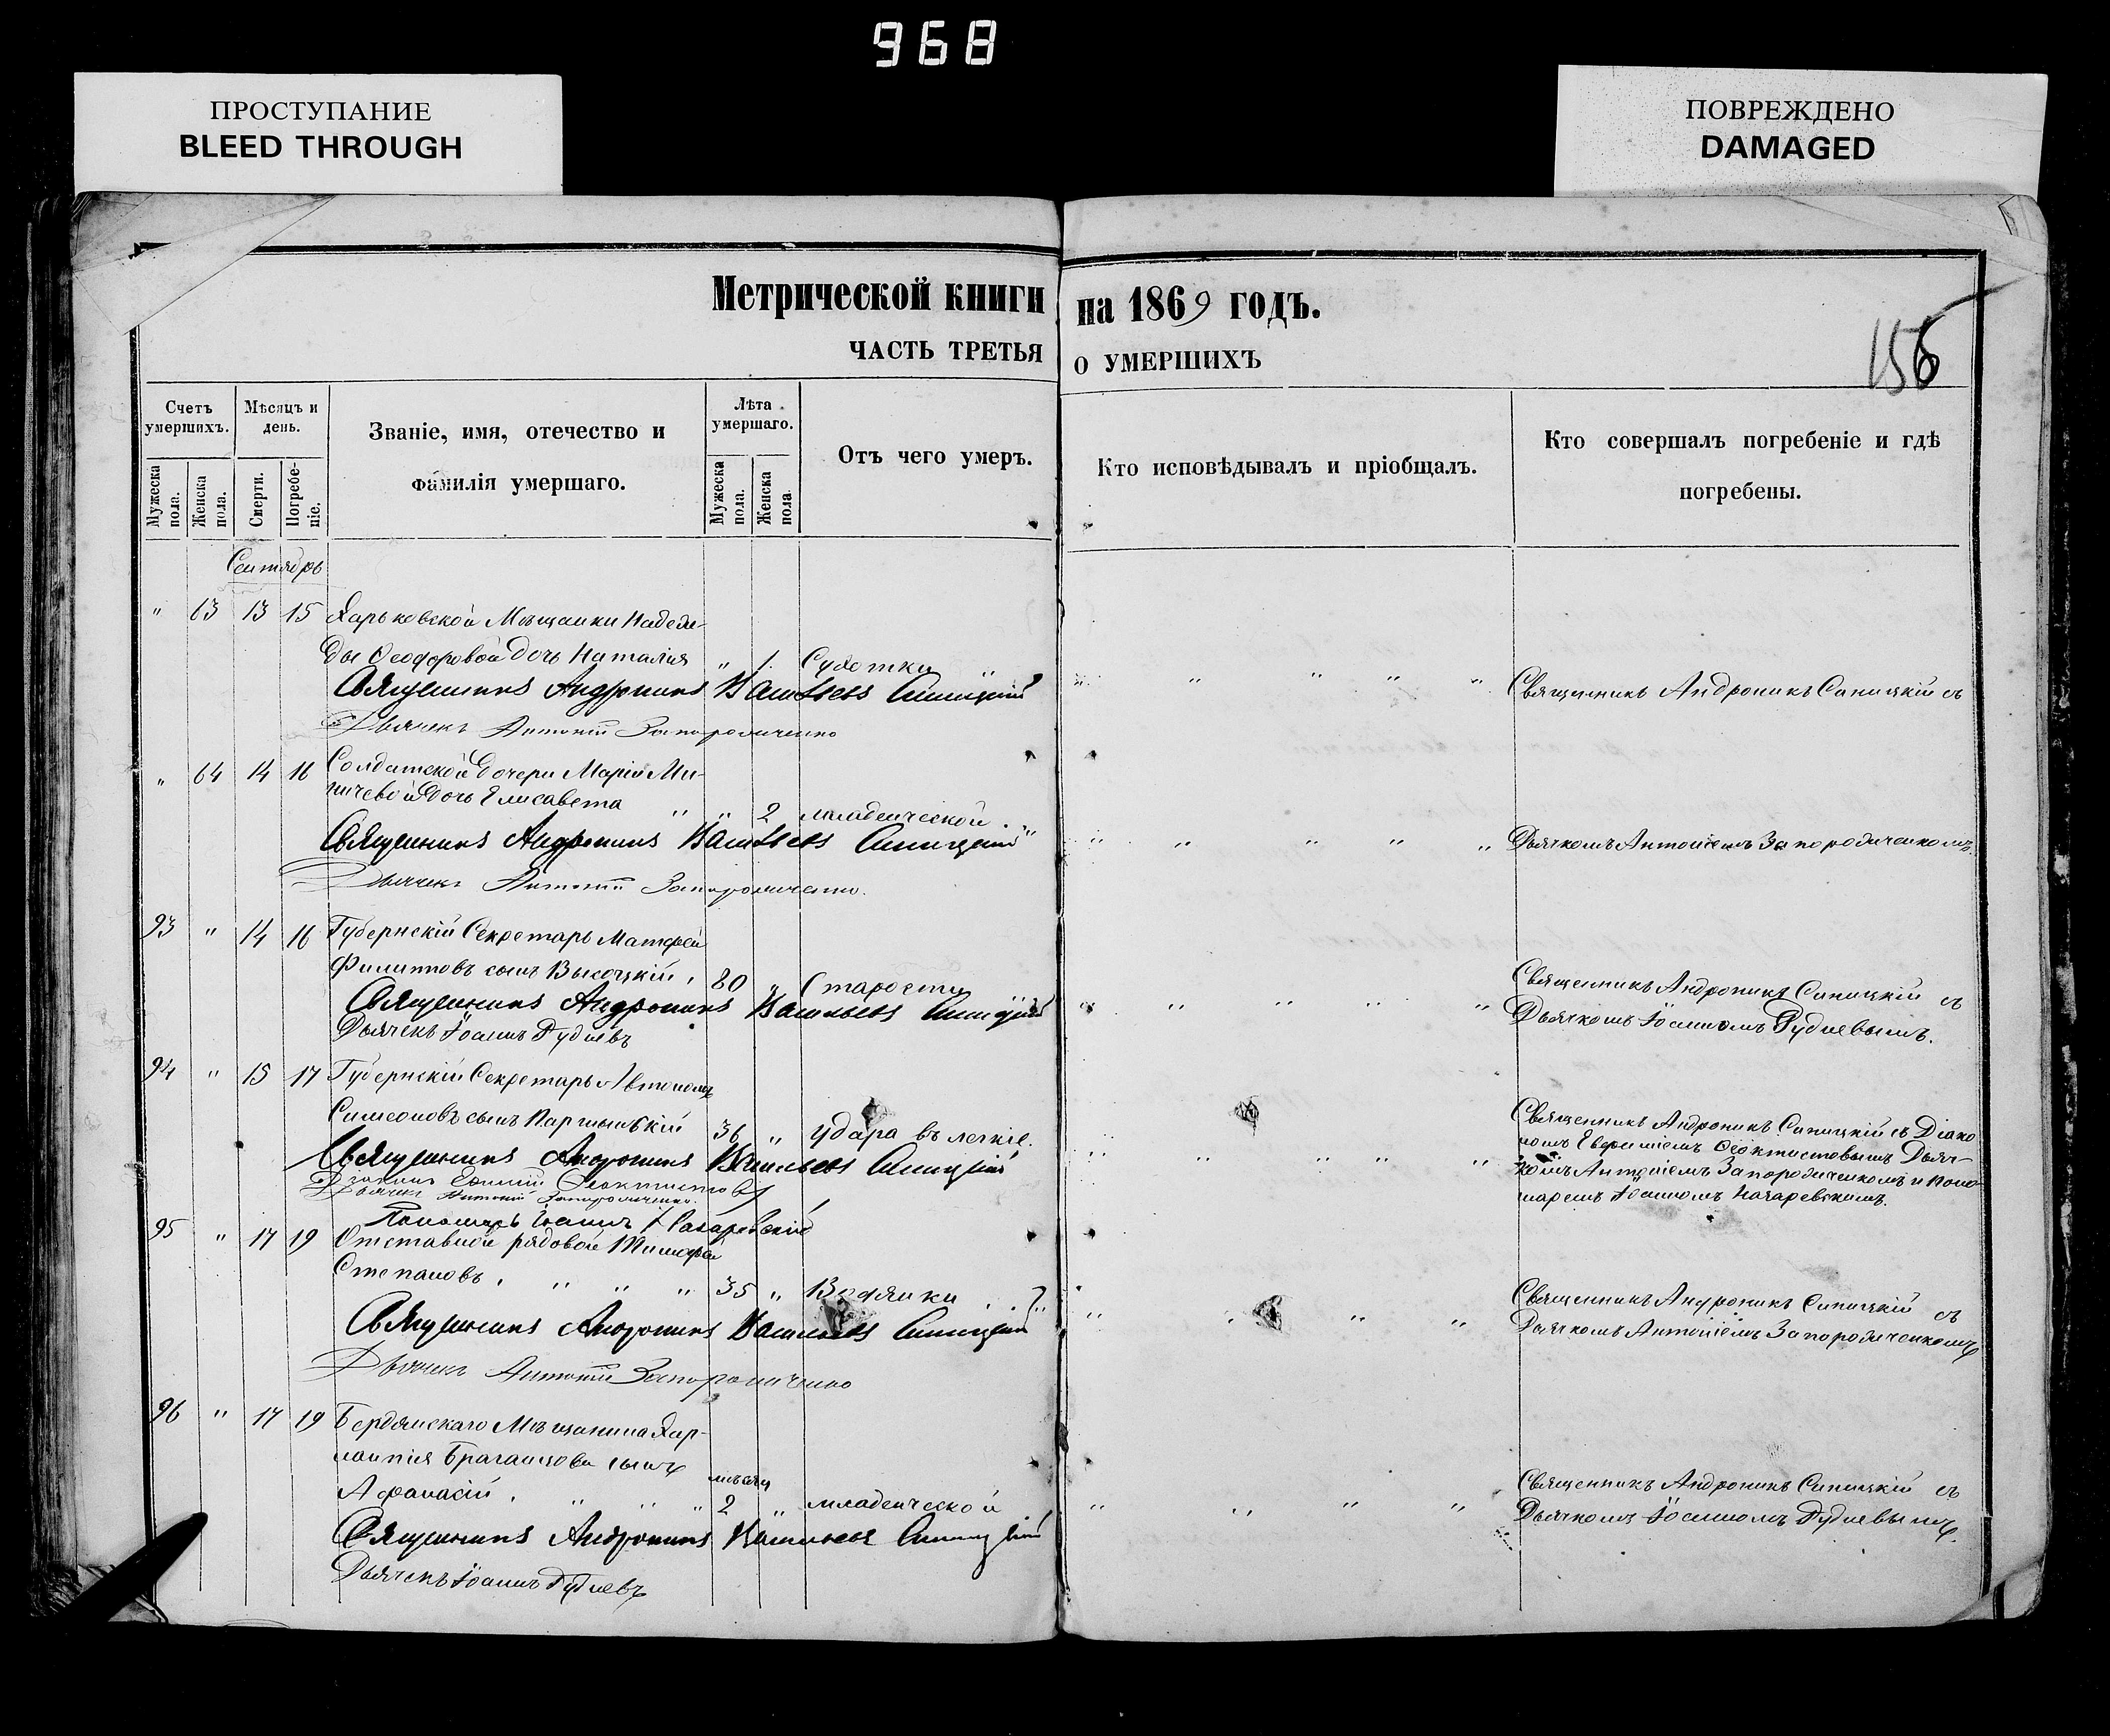 968
ПРОСТУПАНИЕ
BLEED THROUGH
ПОВРЕЖДЕНО
DAMAGED
Метрической книги на 1869 годъ.
ЧАСТЬ ТРЕТЬЯ о УМЕРШИХЪ
156
Счетъ умершихъ.
Мѣсяцъ и день.
Званіе, имя, отечество и фамилія умершаго.
Лѣта умершаго.
Отъ чего умеръ.
Кто исповѣдывалъ и пріобщалъ.
Кто совершалъ погребеніе и гдѣ погребены.
Мужеска пола.
Женска пола.
Смерти.
Погребеніе.
Мужеска пола.
Женска пола.
Сентябрь
" 63 13 15 Харьковской Мѣщанки Надеж-
ды Ѳеодоровой дочь Наталія " 1. Сухотки " " " " " " Священникъ Андроникъ Синицкій съ
Священникъ Андроникъ Васильевъ Синицкій
Дьячекъ Антоній Запорожченко
" 64 14 16 Солдатской дочери Маріи Ми-
ничевой дочь Елисавета " " 2 младенческой " " " " " " Дьячкомъ Антоніемъ Запорожченкомъ.
Священникъ Андроникъ Васильевъ Синицкій
Дьячекъ Антоній Запорожченко.
93 " 14 16 Губернскій Секретарь Матфей
Филипповъ сынъ Высоцкій, 80 " Старости " " " " " Священникъ Андроникъ Синицкій съ
Священникъ Андроникъ Васильевъ Синицкій
Дьячкомъ Іоанномъ Рудневымъ.
Дьячекъ Іоаннъ Рудневъ
94 " 15 17 Губернскій Секретарь Автономъ
Симеоновъ сынъ 36 " удара въ легкіе. " " " " " Священникъ Андроникъ Синицкій съ Діако
Священникъ Андроникъ Васильевъ Синицкій
номъ Евфиміемъ Ѳеоктистовымъ Дьяч-
Діаконъ Евфимій Ѳеоктистовъ
комъ Антоніемъ Запорожченкомъ и Поно-
Дьячекъ Антоній Запорожченко.
маремъ Іоанномъ Назаревскимъ.
Пономарь Іоаннъ Назаревскій
95 " 17 19 Отставной рядовой Тимофей
Степановъ, " " " 35 " Водянки " " " " Священникъ Андроникъ Синицкій съ
Священникъ Андроникъ Васильевъ Синицкій
Дьячкомъ Антоніемъ Запорожченкомъ
Дьячекъ Антоній Запорожченко
96 " 17 19 Бердянскаго Мѣщанина Хар-
лампія сынъ
мѣсяц
Афанасій, " " " 2 " младенческой " " " " Священникъ Андроникъ Синицкій съ
Священникъ Андроникъ Васильевъ Синицкій
Дьячкомъ Іоанномъ Рудневымъ.
Дьячекъ Іоаннъ Рудневъ